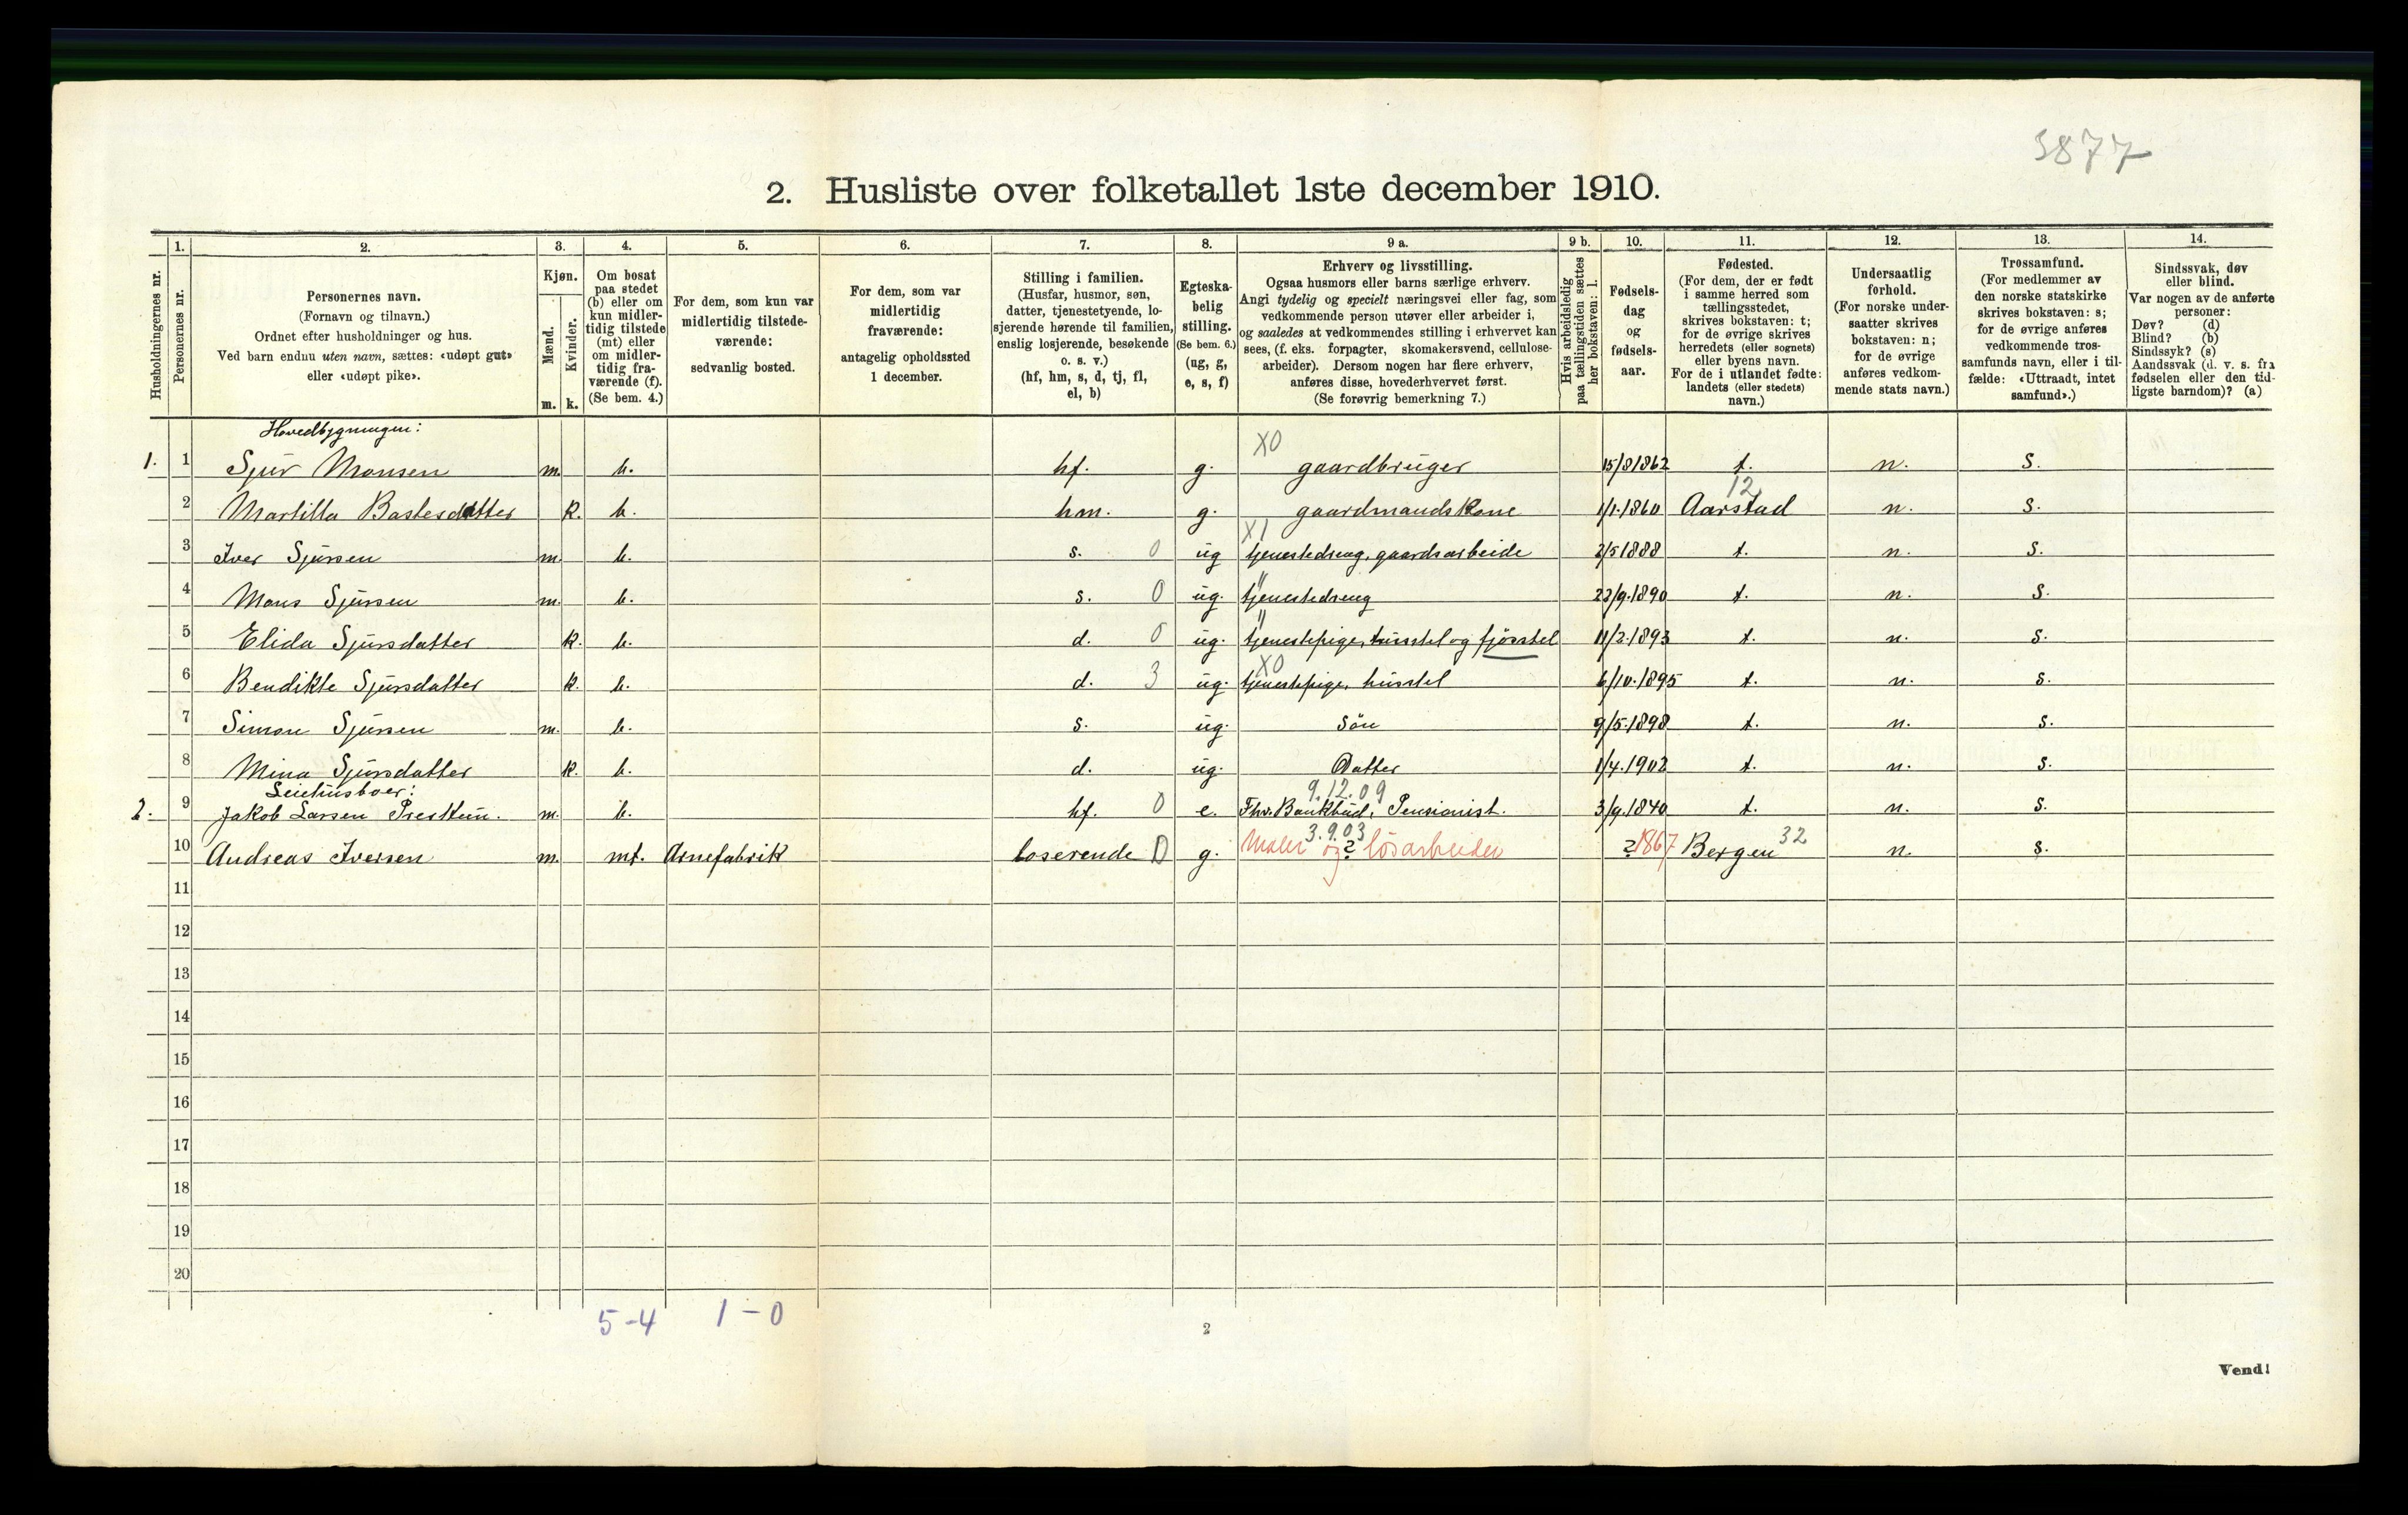 3877
2. Husliste over folketallet 1ste december 1910.
Husholdningernes nr.
1. Personernes nr.
2. Personernes navn.
(Fornavn og tilnavn.)
Ordnet efter husholdninger og hus.
Ved barn endnu uten navn, sættes: «udøpt gut»
eller «udøpt pike».
3. Kjøn.
Mænd. m.
Kvinder. k.
4. Om bosat
paa stedet
(b) eller om
kun midler-
tidig tilstede
(mt) eller
om midler-
tidig fra-
værende (f).
(Se bem. 4.)
5. For dem, som kun var
midlertidig tilstede-
værende:
sedvanlig bosted.
6. For dem, som var
midlertidig
fraværende:
antagelig opholdssted
1 december.
7. Stilling i familien.
(Husfar, husmor, søn,
datter, tjenestetyende, lo-
sjerende hørende til familien,
enslig losjerende, besøkende
o. s. v.)
(hf, hm, s, d, tj, fl,
el, b)
8. Egteska-
belig
stilling.
(Se bem. 6.)
(ug, g,
e, s, f)
9 a. Erhverv og livsstilling.
Ogsaa husmors eller barns særlige erhverv.
Angi tydelig og specielt næringsvei eller fag, som
vedkommende person utøver eller arbeider i,
og saaledes at vedkommendes stilling i erhvervet kan
sees, (f. eks. forpagter, skomakersvend, cellulose-
arbeider). Dersom nogen har flere erhverv,
anføres disse, hovederhvervet først.
(Se forøvrig bemerkning 7.)
9 b. Hvis arbeidsledig
paa tællingstiden sættes
her bokstaven: l.
10. Fødsels-
dag
og
fødsels-
aar.
11. Fødested.
(For dem, der er født
i samme herred som
tællingsstedet,
skrives bokstaven: t;
for de øvrige skrives
herredets (eller sognets)
eller byens navn.
For de i utlandet fødte:
landets (eller stedets)
navn.)
12. Undersaatlig
forhold.
(For norske under-
saatter skrives
bokstaven: n;
for de øvrige
anføres vedkom-
mende stats navn.)
13. Trossamfund.
(For medlemmer av
den norske statskirke
skrives bokstaven: s;
for de øvrige anføres
vedkommende tros-
samfunds navn, eller i til-
fælde: «Uttraadt, intet
samfund».)
14. Sindssvak, døv
eller blind.
Var nogen av de anførte
personer:
Døv? (d)
Blind? (b)
Sindssyk? (s)
Aandssvak (d. v. s. fra
fødselen eller den tid-
ligste barndom)? (a)
Hovedbygningen:
X0
1. 1 Sjur Monsen m. b. hf. g. gaardbruger 15/8 1862 t. n. s.
12
2 Martilla Bastesdatter k. b. hm. g. gaardmandskone 1/1.1860 Aarstad n. s.
X1
3 Iver Sjursen m. b. s. 0 ug tjenestedreng, gaardsarbeide 3/5 1888 t. n. s.
"
4 Mons Sjursen m. b. s. 0 ug. tjenestedreng 23/9.1890 t. n. s.
"
5 Elida Sjursdatter k. b. d. 0 ug. tjenestepige, husstel og fjösstel 11/2.1893 t. n. s.
X0
6 Bendikte Sjursdatter k. b. d. 3 ug. tjenestepige, husstel 6/10.1895 t. n. s.
7 Simon Sjursen m. b. s. ug. Sön 9/5.1898 t. n. s.
8 Mina Sjursdatter k. b. d. ug. Datter 1/4.1902 t. n. s.
Leiehusboer:
9.12.09
2. 9 Jakob Larsen Presttun. m. b. hf. 0 e. Fhv. Bankbud, Pensionist. 3/9.1840 t. n. s.
3.9.03
10 Andreas Iversen m. mt. Arnefabrik loserende D g. Maler og ? lösarbeider ? 1867 Bergen 32 n. s.
11
12
13
14
15
16
17
18
19
20
5-4 1-0
2
Vend!